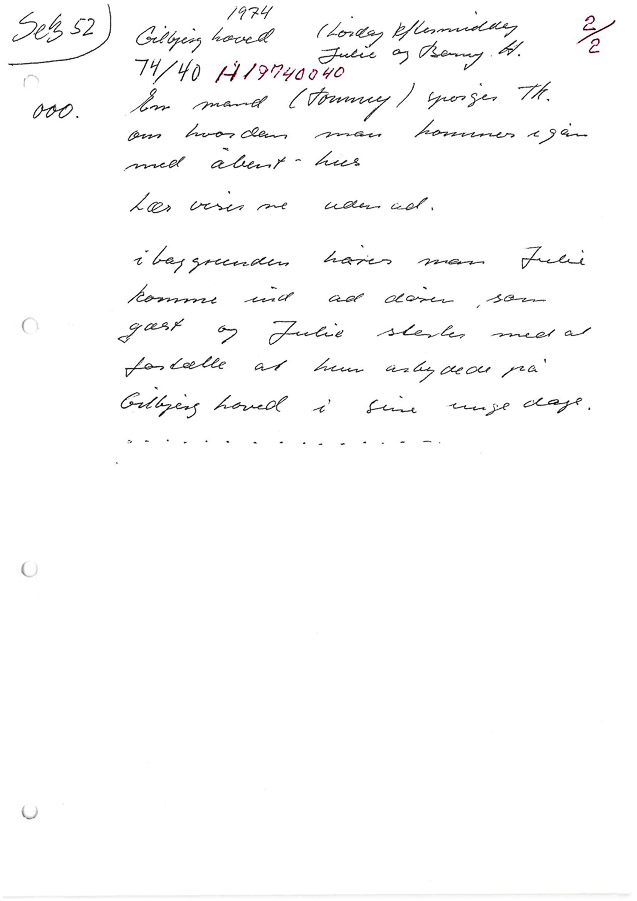 Seb 52
1974
Gilbjerg hoved (Lørdag Eftermiddag
Julie og Benny H.
2/2
74/40 H19740040
000. En mand (Tommy) spørger Th.
om hvordan man kommer igån
med åbent-hus
Lær vises ne udenad.
i baggrunden høres man Julie
komme ind ad døren, som
gæst og Julie starter med at
fortælle at hun arbejdede på
Gilbjerg hoved i sine unge dage.